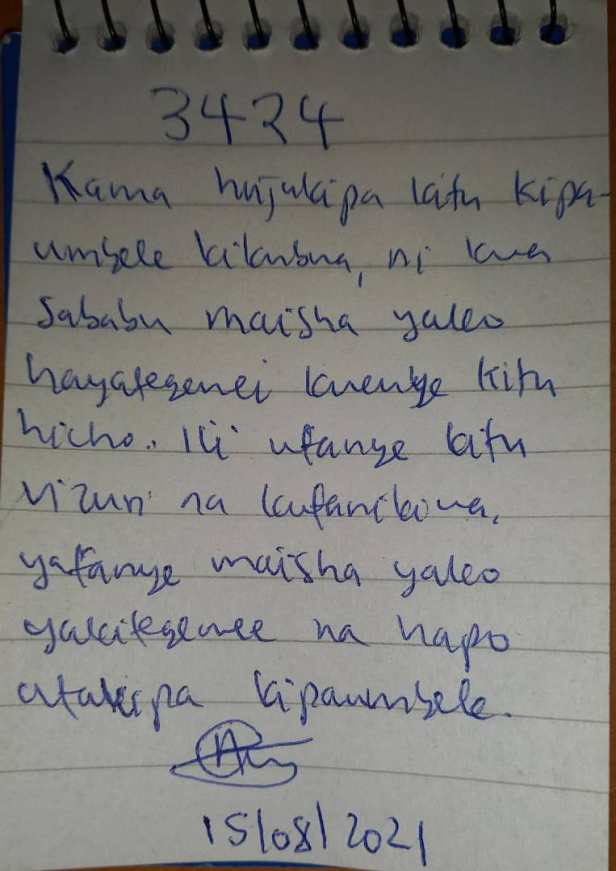 3424
Kama hujakipa kitu kipa-
umbele kikubwa, ni kwa
sababu maisha yako
hayategemei kwenye kitu
hicho. Ili ufanye kitu
vizuri na kufanikiwa,
yafanye maisha yako
yakitegemee na hapo
utakipa kipaumbele.
15/08/2021